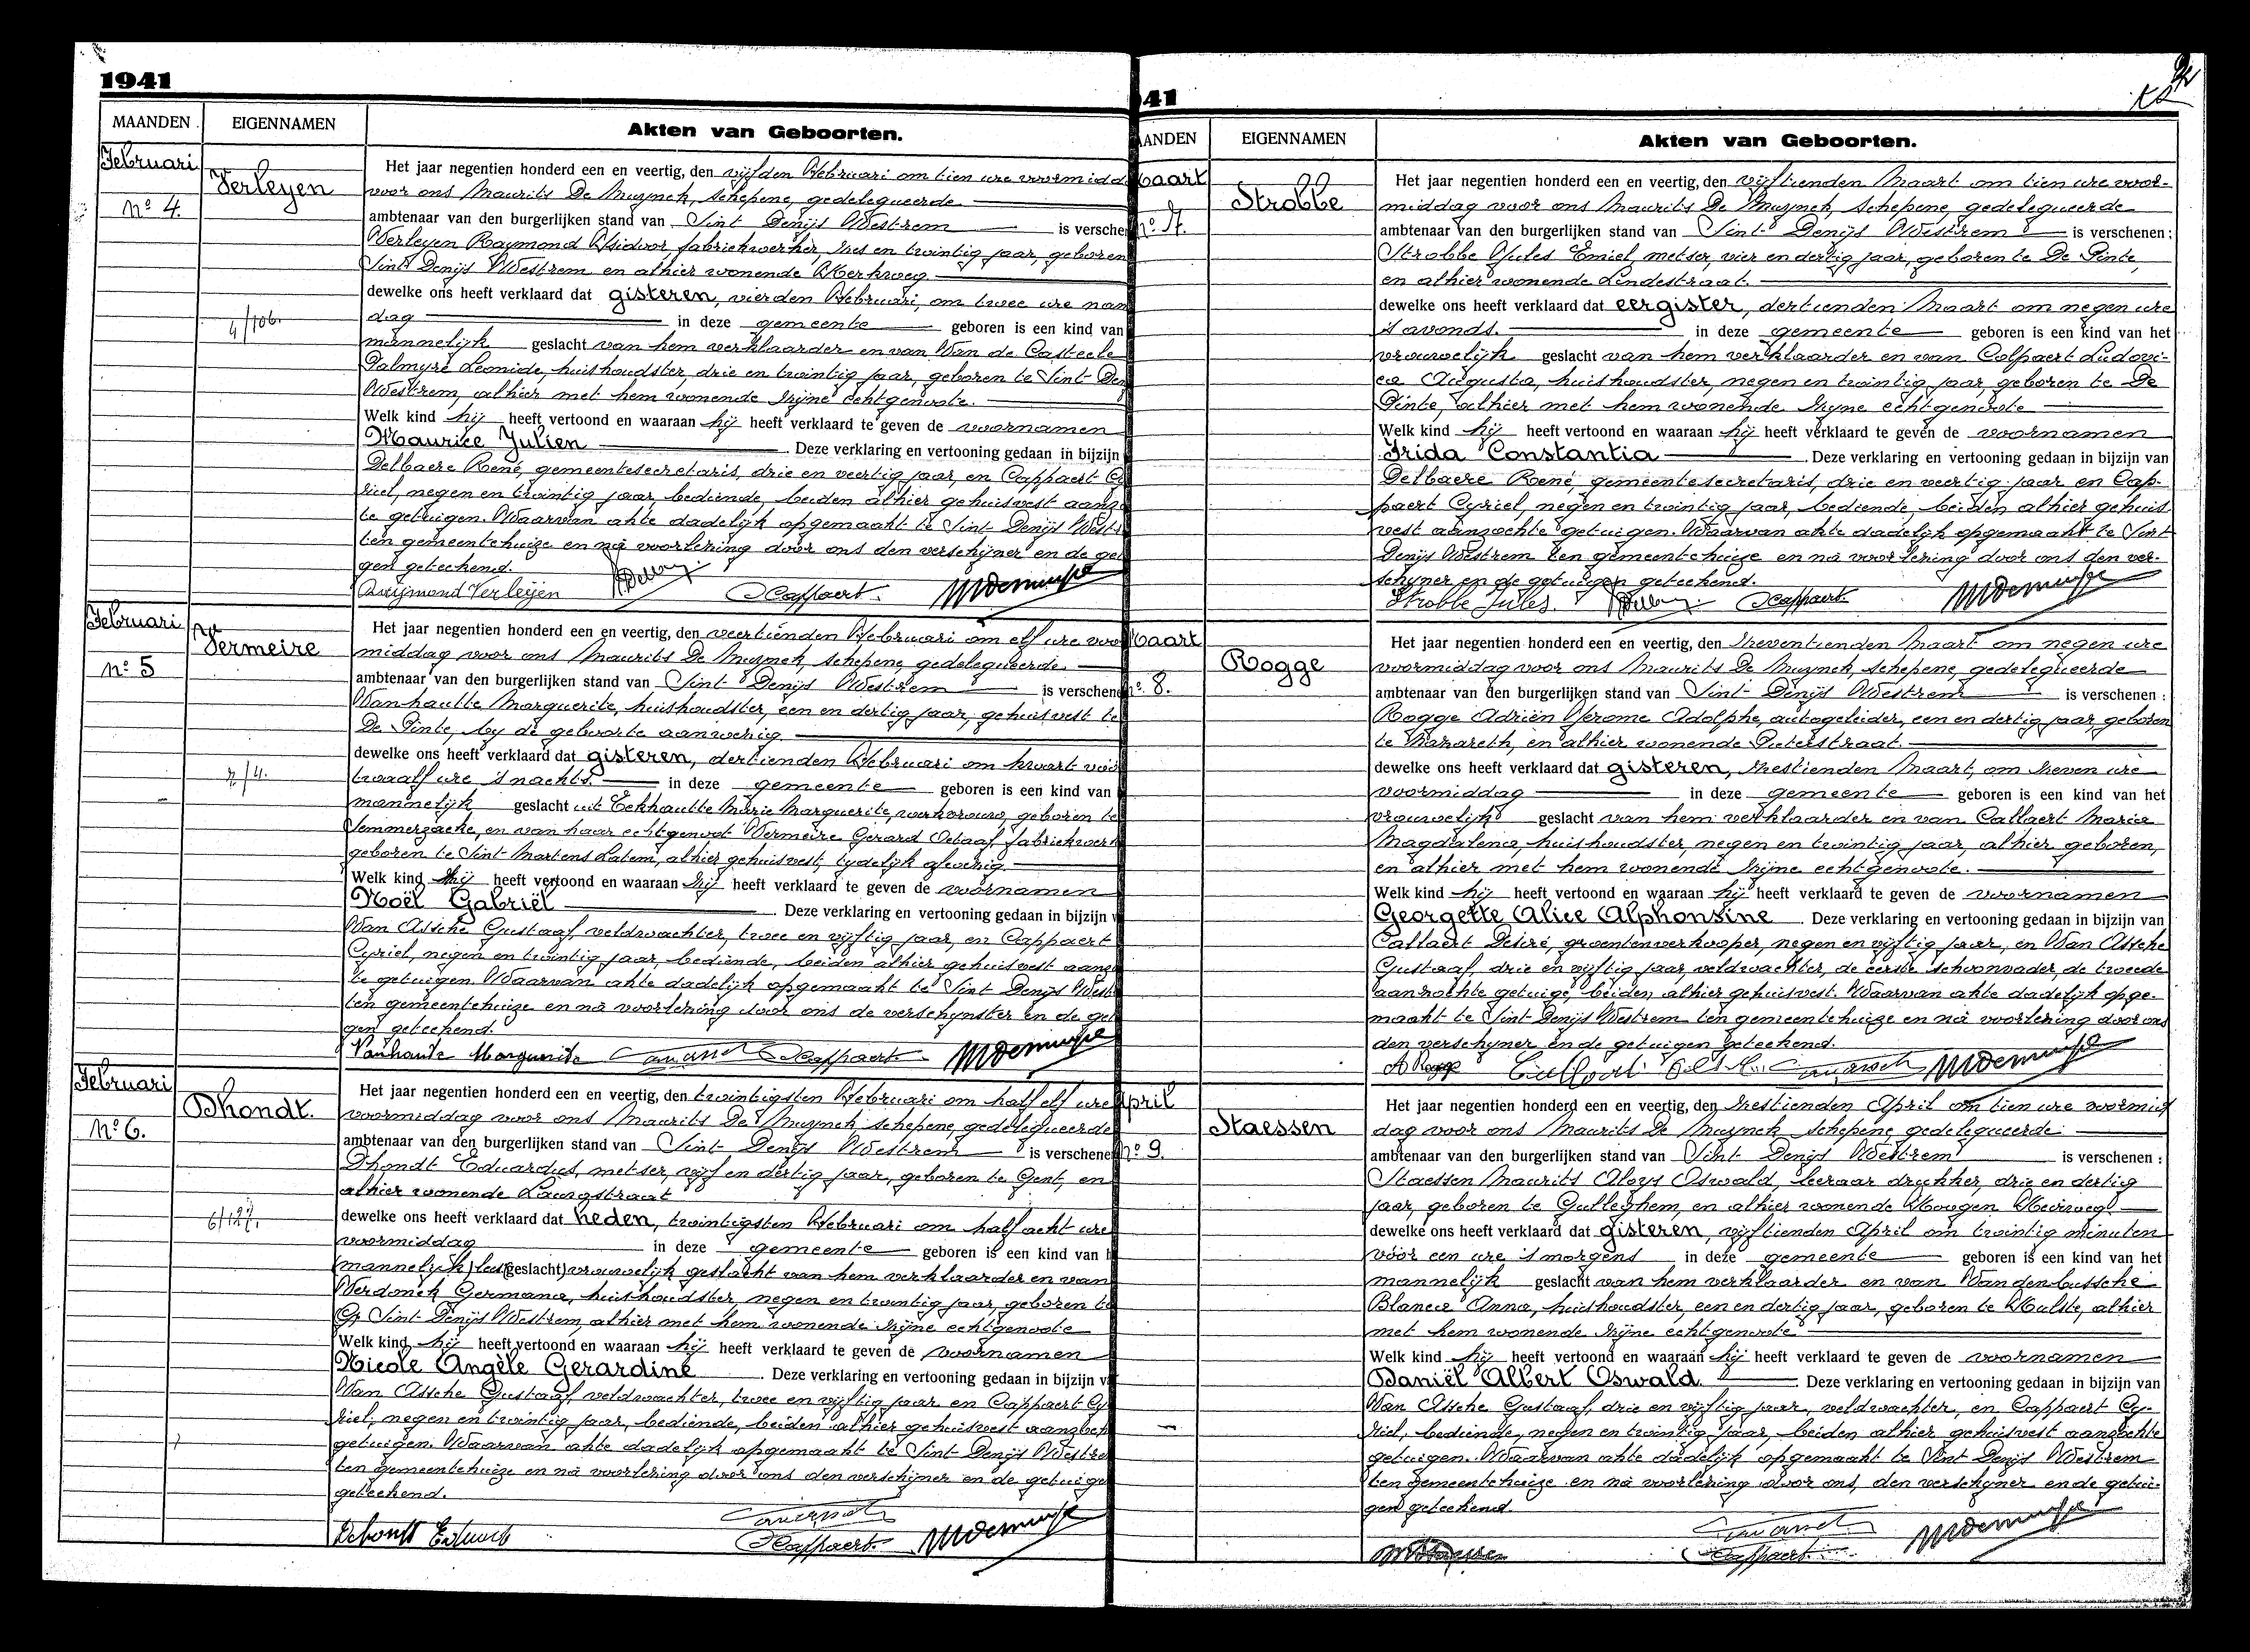 1941
MAANDEN
EIGENNAMEN
Akten van Geboorten.
Februari
Verleyen
Nº 4.
4/106.
Het jaar negentien honderd een en veertig, den vijfden Februari om tien ure voormidd
voor ons Maurits De Muynck, schepene, gedelegueerde
ambtenaar van den burgerlijken stand van Sint Denijs Westrem is verschen
Verleyen Raymond Isidoor, fabriekwerker, zes en twintig jaar, geboren
Sint Denijs Westrem en alhier wonende Kerkweg.
dewelke ons heeft verklaard dat gisteren, vierden Februari, om twee ure nam
dag in deze gemeente geboren is een kind van
mannelijk geslacht van hem verklaarder en van Van de Casteele
Palmyre Leonide, huishoudster, drie en twintig jaar, geboren te Sint Den
Westrem, alhier met hem wonende zijne echtgenoote.
Welk kind hij heeft vertoond en waaraan hij heeft verklaard te geven de voornamen
Maurice Julien . Deze verklaring en vertooning gedaan in bijzijn
Delbaere René, gemeentesecretaris, drie en veertig jaar, en Cappaert Cy
riel, negen en twintig jaar, bediende, beiden alhier gehuisvest aanzo
te getuigen. Waarvan akte dadelijk opgemaakt te Sint Denijs West
ten gemeentehuize en na voorlezing door ons den verschijner en de get
gen geteekend.
Raijmond Verleijen Cappaert. MDemuynck
Februari
Vermeire
Nº 5
2/4.
Het jaar negentien honderd een en veertig, den veertienden Februari om elf ure voor
middag voor ons Maurits De Muynck, schepene, gedelegueerde
ambtenaar van den burgerlijken stand van Sint Denijs Westrem is verschene
Vanhautte Marguerite, huishoudster, een en dertig jaar, gehuisvest te
De Pinte, by de geboorte aanwezig
dewelke ons heeft verklaard dat gisteren, dertienden Februari om kwart voor
twaalf ure 's nachts. in deze gemeente geboren is een kind van
mannelijk geslacht uit Eekhautte Marie Marguerite, werkvrouw, geboren te
Semmerzaeke, en van haar echtgenoot Vermeire Gerard Octaaf, fabriekwerk
geboren te Sint Martens Latem, alhier gehuisvest, tydelijk afwezig.
Welk kind zij heeft vertoond en waaraan zij heeft verklaard te geven de voornamen
Noël Gabriël . Deze verklaring en vertooning gedaan in bijzijn v
Van Assche Gustaaf, veldwachter, twee en vijftig jaar, en Cappaert
Cyriel, negen en twintig jaar, bediende, beiden alhier gehuisvest aanzo
te getuigen. Waarvan akte dadelijk opgemaakt te Sint Denijs West
ten gemeentehuize en na voorlezing door ons de verschynster en de get
gen geteekend.
Vanhaute Marguerite Cappaert MDemuynck
Februari
Dhondt.
Nº 6.
Het jaar negentien honderd een en veertig, den twintigsten Februari om half elf ure
voormiddag voor ons Maurits De Muynck schepene, gedelegueerde
ambtenaar van den burgerlijken stand van Sint Denijs Westrem is verschene
Dhondt Eduardus, metser, vijf en dertig jaar, geboren te Gent, en
alhier wonende Laurastraat
dewelke ons heeft verklaard dat heden, twintigsten Februari om half acht ure
voormiddag in deze gemeente geboren is een kind van h
(mannelijk) lees (geslacht) vrouwelijk geslacht van hem verklaarder en van
Verdonck Germana, huishoudster negen en twintig jaar, geboren te
Sint Denijs Westrem, alhier met hem wonende zijne echtgenoote
Welk kind hij heeft vertoond en waaraan hij heeft verklaard te geven de voornamen
Nicole Angèle Gerardine . Deze verklaring en vertooning gedaan in bijzijn v
Van Assche Gustaaf, veldwachter, twee en vijftig jaar en Cappaert Cy
riel, negen en twintig jaar, bediende, beiden alhier gehuisvest aanzoch
getuigen. Waarvan akte dadelijk opgemaakt te Sint Denijs Westre
ten gemeentehuize en na voorlezing door ons den verschijner en de getuige
geteekend.
Cappaert MDemuynck
41
ANDEN
EIGENNAMEN
Akten van Geboorten.
Maart
Strobbe
nº 7.
Het jaar negentien honderd een en veertig, den vijftienden Maart om tien ure voor-
middag voor ons Maurits De Muynck, schepene, gedelegueerde
ambtenaar van den burgerlijken stand van Sint Denijs Westrem is verschenen :
Strobbe Jules Emiel, metser, vier en dertig jaar, geboren te De Pinte,
en alhier wonende Lindestraat.
dewelke ons heeft verklaard dat eergister, dertienden Maart om negen ure
's avonds. in deze gemeente geboren is een kind van het
vrouwelijk geslacht van hem verklaarder en van Colpaert Ludovi-
ca Augusta, huishoudster, negen en twintig jaar, geboren te De
Pinte, alhier met hem wonende zijne echtgenoote
Welk kind hij heeft vertoond en waaraan hij heeft verklaard te geven de voornamen
Frida Constantia . Deze verklaring en vertooning gedaan in bijzijn van
Delbaere René, gemeentesecretaris, drie en veertig jaar en Cap-
paert Cyriel, negen en twintig jaar, bediende, beiden alhier gehuis
vest aanzochte getuigen. Waarvan akte dadelijk opgemaakt te Sint
Denijs Westrem ten gemeentehuize en na voorlezing door ons den ver-
schijner en de getuigen geteekend.
Strobbe Jules. Cappaert. MDemuynck
Maart
Rogge
nº 8.
Het jaar negentien honderd een en veertig, den zeventienden Maart om negen ure
voormiddag voor ons Maurits De Muynck, schepene, gedelegueerde
ambtenaar van den burgerlijken stand van Sint Denijs Westrem is verschenen :
Rogge Adriën Jerome Adolphe, autogeleider, een en dertig jaar, geboren
te Nazareth, en alhier wonende Pieterstraat.
dewelke ons heeft verklaard dat gisteren, zestienden Maart, om zeven ure
voormiddag in deze gemeente geboren is een kind van het
vrouwelijk geslacht van hem verklaarder en van Callaert Maria
Magdalena, huishoudster, negen en twintig jaar, alhier geboren,
en alhier met hem wonende zijne echtgenoote.
Welk kind hij heeft vertoond en waaraan hij heeft verklaard te geven de voornamen
Georgette Alice Alphonsine . Deze verklaring en vertooning gedaan in bijzijn van
Callaert Desiré, groentenverkooper, negen en vijftig jaar, en Van Assche
Gustaaf, drie en vijftig jaar, veldwachter, de eerste schoonvader, de tweede
aanzochte getuige, beiden alhier gehuisvest. Waarvan akte dadelijk opge-
maakt te Sint Denijs Westrem ten gemeentehuize en na voorlezing door ons
den verschyner en de getuigen geteekend.
A Rogge MDemuynck
April
Staessen
nº 9.
Het jaar negentien honderd een en veertig, den zestienden April om tien ure voormid
dag voor ons Maurits De Muynck schepene, gedelegueerde
ambtenaar van den burgerlijken stand van Sint Denijs Westrem is verschenen :
Staessen Maurits Aloys Oswald, leeraar drukker, drie en dertig
jaar, geboren te Gulleghem, en alhier wonende Hoogen Heirweg.
dewelke ons heeft verklaard dat gisteren, vijftienden April om twintig minuten
vóór een ure 's morgens in deze gemeente geboren is een kind van het
mannelijk geslacht van hem verklaarder en van Vandenbussche
Blanca Anna, huishoudster, een en dertig jaar, geboren te Hulste, alhier
met hem wonende zijne echtgenoote
Welk kind hij heeft vertoond en waaraan hij heeft verklaard te geven de voornamen
Daniël Albert Oswald. . Deze verklaring en vertooning gedaan in bijzijn van
Van Assche Gustaaf, drie en vijftig jaar, veldwachter, en Cappaert Cy-
riel, bediende, negen en twintig jaar, beiden alhier gehuisvest aanzochte
getuigen. Waarvan akte dadelijk opgemaakt te Sint Denijs Westrem
ten gemeentehuize en na voorlezing door ons, den verschijner en de getui-
gen geteekend.
Cappaert. MDemuynck